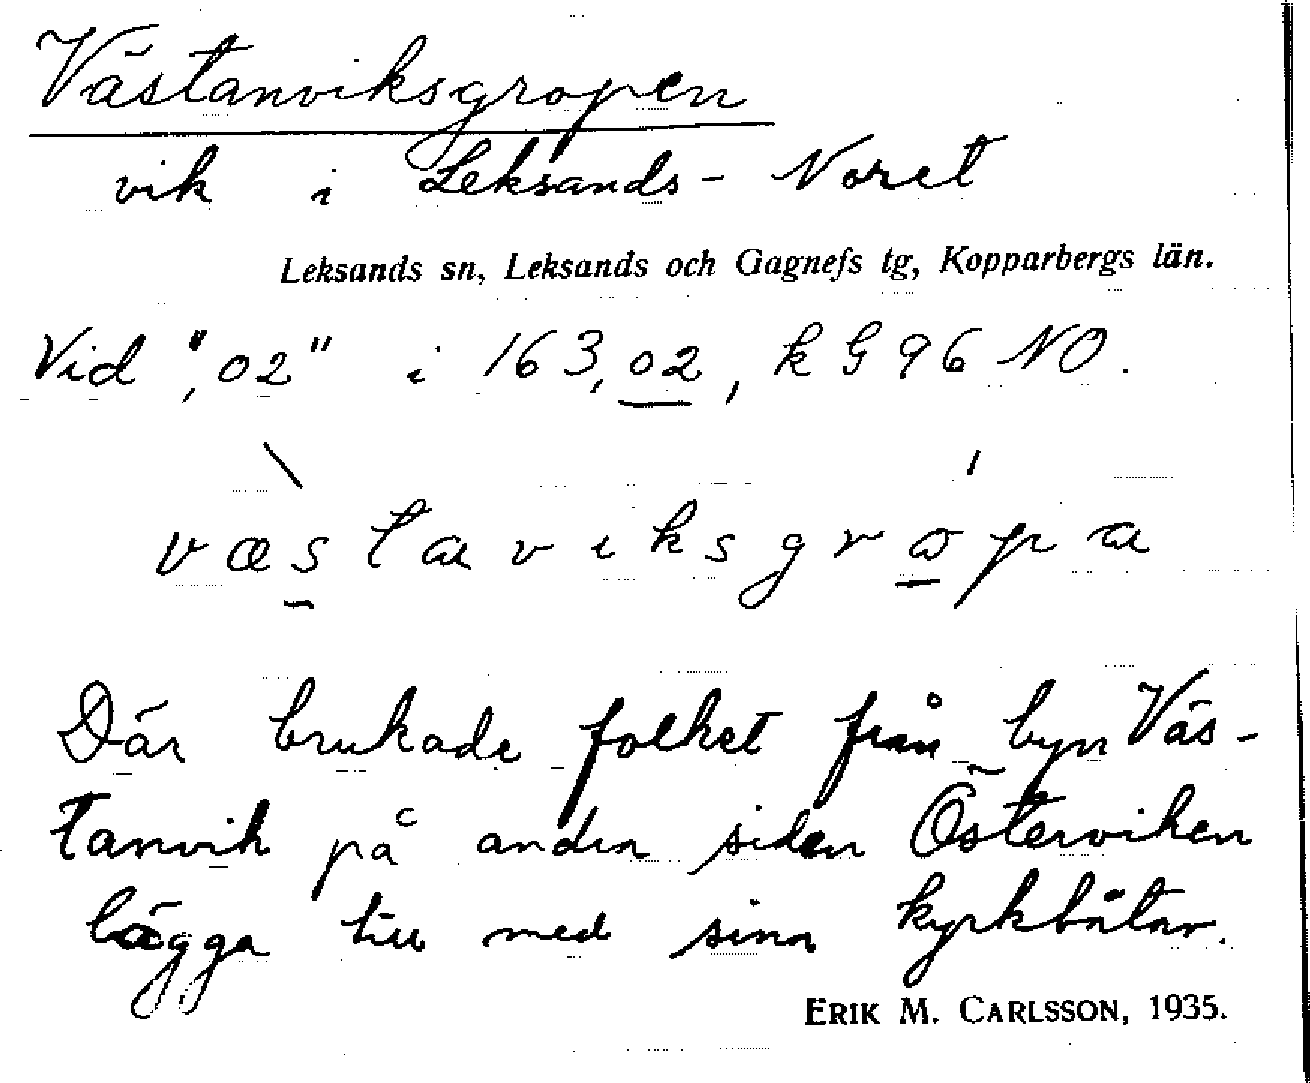 Västanviksgropen
vik i Leksands-Noret
Leksands sn, Leksands och Gagnefs tg, Kopparbergs län.
Vid ",02" i 163,02, k G 96 NO.
væstaviksgrɷpa
Där brukade folket från byn Väs-
tanvik på andra sidan Österviken
lägga till med sina kyrkbåtar.
ERIK M. CARLSSON, 1935.